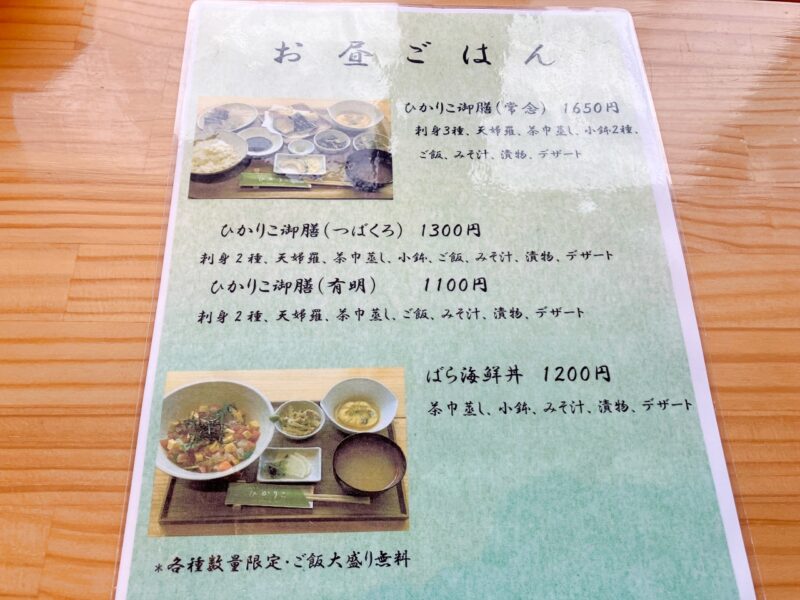 お昼ごはん
ひかりこ御膳(常念) 1650円
刺身3種、天婦羅、茶巾蒸し、小鉢2種、
ご飯、みそ汁、漬物、デザート
ひかりこ御膳(つばくろ) 1300円
刺身2種、天婦羅、茶巾蒸し、小鉢、ご飯、みそ汁、漬物、デザート
ひかりこ御膳(有明) 1100円
刺身2種、天婦羅、茶巾蒸し、ご飯、みそ汁、漬物、デザート
ばら海鮮丼 1200円
茶巾蒸し、小鉢、みそ汁、漬物、デザート
ひかりこ
*各種数量限定・ご飯大盛り無料